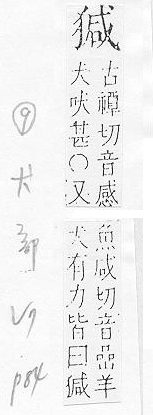 㺂
古禫切音感
犬吠甚○又
魚咸切音嵒羊
犬有力皆曰㺂
⑨ 犬部
p84